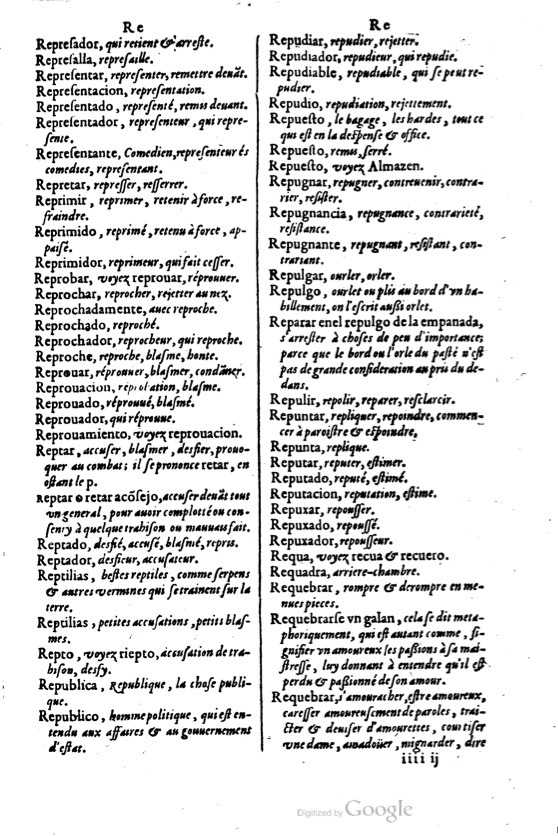 Re
Repreſador, qui retient & arreſte.
Repreſalla, repreſaille.
Repreſentar, repreſenter, remettre deuāt.
Repreſentacion, repreſentation.
Repreſentado, repreſenté, remis deuant.
Repreſentador, repreſenteur, qui repre-
ſente.
Repreſentante, Comedien, repreſenteur és
comedies, repreſentant.
Repretar, repreſſer, reſſerrer.
Reprimir, reprimer, retenir à force, re-
fraindre.
Reprimido, reprimé, retenu à force, ap-
paiſé.
Reprimidor, reprimeur, qui fait ceſſer.
Reprobar, voyez reprouar, réprouuer.
Reprochar, reprocher, rejetter au nez.
Reprochadamente, auec reproche.
Reprochado, reproché.
Reprochador, reprocheur, qui reproche.
Reproche, reproche, blaſme, honte.
Reprouar, réprouuer, blaſmer, condāner.
Reprouacion, reprobation, blaſme.
Reprouado, réprouué, blaſmé.
Reprouador, qui réprouue.
Reprouamiento, voyez reprouacion.
Reptar, accuſer, blaſmer, desfier, prouo-
quer au combat; il ſe prononce retar, en
oſtant le p.
Reptar o retar acōſejo, accuſer deuāt tout
vn general, pour auoir complotté ou con-
ſenty à quelque trahiſon ou mauuais fait.
Reptado, desfié, accuſé, blaſmé, repris.
Reptador, desfieur, accuſateur.
Reptilias, beſtes reptiles, comme ſerpens
& autres vermines qui ſe traînent ſur la
terre.
Reptilias, petites accuſations, petits blaſ-
mes.
Repto, voyez riepto, accuſation de tra-
hiſon, desfy.
Republica, Republique, la choſe publi-
que.
Republico, homme politique, qui eſt en-
tendu aux affaires & au gouuernement
d'eſtat.
Re
Repudiar, repudier, rejetter.
Repudiador, repudieur, qui repudie.
Repudiable, repudiable, qui ſe peut re-
pudier.
Repudio, repudiation, rejettement.
Repueſto, le bagage, les hardes, tout ce
qui eſt en la deſpenſe & office.
Repueſto, remis, ſerré.
Repueſto, voyez Almazen.
Repugnar, repugner, contreuenir, contra-
rier, reſiſter.
Repugnancia, repugnance, contrarieté,
reſiſtance.
Repugnante, repugnant, reſiſtant, con-
trariant.
Repulgar, ourler, orler.
Repulgo, ourlet ou plis au bord d'vn ha-
billement, on l'eſcrit außi orlet.
Reparar en el repulgo de la empanada,
s'arreſter à choſes de peu d'importance;
parce que le bord ou l'orle du paſté n'eſt
pas de grande conſideration au pris du de-
dans.
Repulir, repolir, reparer, reſclarcir.
Repuntar, repliquer, repoindre, commen-
cer à paroiſtre & eſpoindre,
Repunta, replique.
Reputar, reputer, eſtimer.
Reputado, reputé, eſtimé.
Reputacion, reputation, eſtime.
Repuxar, repouſſer.
Repuxado, repouſſé.
Repuxador, repouſſeur.
Requa, voyez recua & recuero.
Requadra, arriere-chambre.
Requebrar, rompre & derompre en me-
nues pieces.
Requebrarſe vn galan, cela ſe dit meta-
phoriquement, qui eſt autant comme, ſi-
gnifier vn amoureux ſes paßions à ſa mai-
ſtreſſe, luy donnant à entendre qu'il eſt
perdu & paßionné de ſon amour.
Requebrar, s'amouracher, eſtre amoureux,
careſſer amoureuſement de paroles, trai-
cter & deuiſer d'amourettes, courtiſer
vne dame, amadoüer, mignarder, dire
iiii ij
Digitized by Google